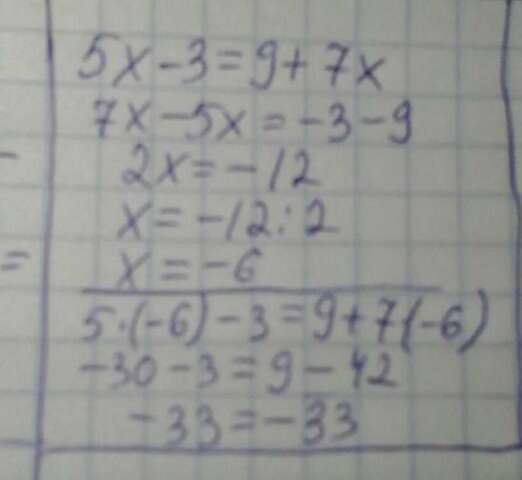 5x-3=9+7x
7x-5x=-3-9
2x=-12
x=-12:2
x=-6
5·(-6)-3=9+7(-6)
-30-3=9-42
-33=-33